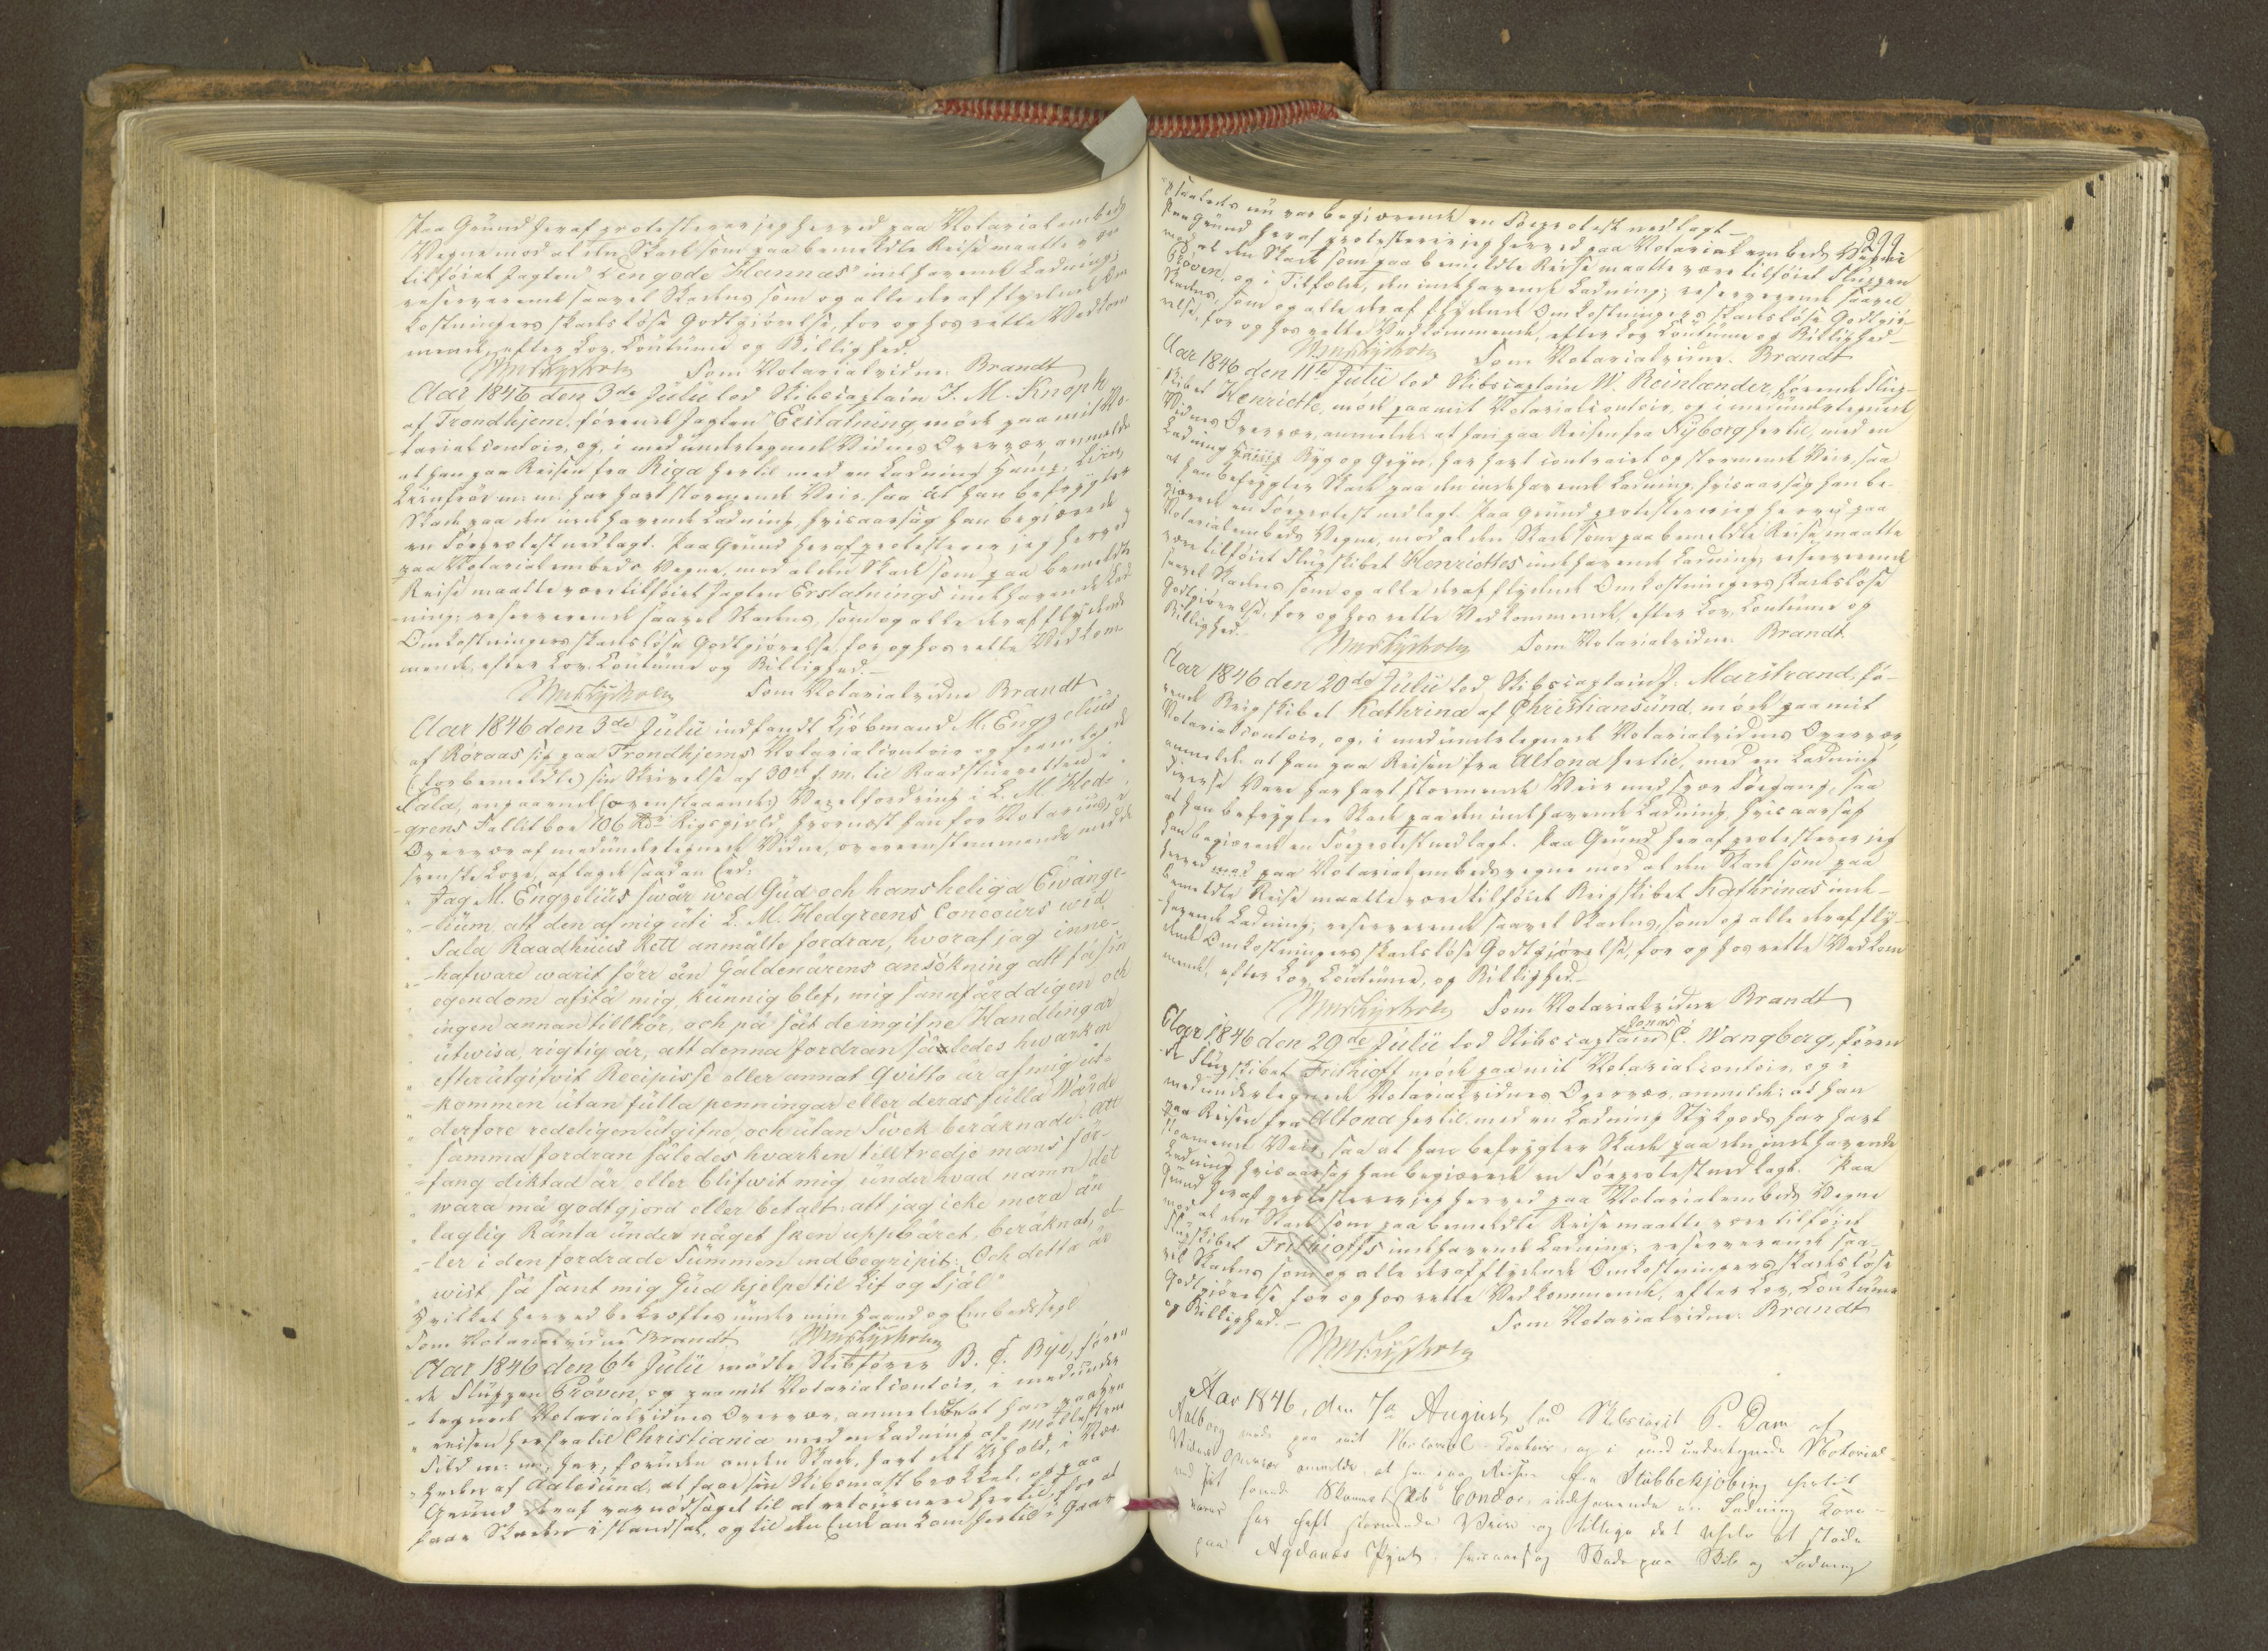 Paa Grund heraf protesterer jeg herved paa Notarialembeds
Vegne mod al den Skade som paa bemeldte Reise maatte være
tilføiet Jagten "Den gode Hannas" indehavende Ladning;
reserverende saavel Skadens som og alle deraf flydende Om-
kostningers skadesløse Godtgiørelse, for og hos rette Vedkom-
mende, efter Lov, Coutume og Billighed.
Som Notarialvidne: Brandt
Aar 1846 den 3de Julii lod Skibscaptain J. M. Knoph
af Trondhjem, førende Jagten "Erstatning, møde paa mit No-
tarialcontoir, og, i medundertegnede Vidnes Overvær anmelde
at han paa Reisen fra Riga hertil med en Ladning Hamp, Liin,
Liinfrøe m: m: har havt stormende Veir, saa at han befrygter
Skade paa den indehavende Ladning, hvisaarsag han begiærede
en Søeprotest nedlagt. Paa Grund heraf protesterer jeg herved
paa Notarialembeds Vegne, mod al den Skade som paa bemeldte
Reise maatte være tilføiet Jagten Erstatnings indehavende Lad-
ning; reserverende saavel Skadens, som og alle deraf flydende
Omkostningers skadesløse Godtgiørelse, for og hos rette Vedkom-
mende, efter Lov, Coutume og Billighed.-
Som Notarialvidne Brandt
Aar 1846 den 3de Julii indfandt Kjøbmand M. Engzelius
af Röraas sig paa Trondhjems Notarialcontoir og fremlagde
(forbemeldte) sin Skrivelse af 30te f. m. til Raadstueretten i
Sala, angaaende (ovenstaaende) Vexelfordring i L. M. Hed-
grens Fallitboe 106 Rdr Rigsgjæld, hvornæst han for Notarius, i
Overvær af medundertegnede Vidne, overeensstemmende med de
svenske Love, aflagde saadan Eed:
" Jag M. Engzelius swär wed Gud och hans heliga Ewange-
" -lium, att den af mig uti L. M. Hedgreens Concours wid
" Sala Raadhuus Rett anmälte fordran, hvoraf jag inne-
" -hafware warit förr än Gäldenärens ansökning att få sin
" egendom afstå mig kunnig blef, mig sannfärddigen och
" ingen annan tillhör, och på sät de ingifne Handlingar
" utwisa, rigtig är, att denna fordran således hwarken
" efter utgifvit Recipisse eller annat Qvitto är af mig ut-
" -kommen utan fulla penningar eller deras fulla Wärde
" derfore redeligen utgifne, och utan Swek beräknade: Att
" samma fordran således hvarken till tredje mans för-
" -fang diktad är eller blifwit mig under hvad namn det
" wara må godtgjord eller betalt: att jag icke mera än
" laglig Ränta under något sken uppbäret, beräknat, el-
" -ler i den fordrade Summen indbegripit: Och detta är
" wist, så sant mig Gud hjelpe til Lif og Själ."
Hvilket herved bekræftes under min Haand og Embedssegl
Som Notarialvidne Brandt
Aar 1846 den 6te Julii mödte Skibsfører B. C. Bye, føren-
de Sluppen Prøven, og paa mit Notarialcontoir, i medunder-
tegnede Notarialvidnes Overvær, anmeldte at han paa hen-
reisen herfra til Christiania med en Ladning af Möllesteen
Sild m: m: har, foruden anden Skade, havt det Uheld, i Nær-
heden af Aalesund, at faae sin Skibsmast brækket, og paa
Grund deraf var nødsaget til at retournere hertil for at
faae Skaden istandsat, og til den Ende ankom hertil i Gaar
299
saaledes nu var begiærende en Søeprotest nedlagt-
Paa Grund heraf protesterer jeg herved paa Notarialembeds Vegne
mod al den Skade som paa bemeldte Reise maatte være tilføiet Sluppen
Prøven, og i Tilfælde, den indehavende Ladning; reserverende saavel
Skadens, som og alle deraf flydende Omkostningers skadesløse Godtgiø-
relse, for og hos rette Vedkommende, efter Lov, Coutume og Billighed-
Som Notarialvidne. Brandt
Aar 1846 den 11te Julii lod Skibscaptain W. Reinlander, førende Slup-
skibet Henriette, møde paa mit Notarialcontoir, og i medundertegnede
Vidnes Overvær, anmelde: at han paa Reisen fra Nyborg hertil, med en
Ladning Byg og Gryn, har havt contrairt og stormende Veir, saa
at han befrygter Skade paa den indehavende Ladning, hvisaarsag han be-
giærede en Søeprotest nedlagt. Paa Grund protesterer jeg herved paa
Notarialembeds Vegne, mod al den Skade som paa bemeldte Reise maatte
være tilføiet Slupskibet Henriettes indehavende Ladning; reserverende
saavel Skadens som og alle deraf flydende Omkostningers skadesløse
Godtgiørelse, for og hos rette Vedkommende, efter Lov, Coutume og
Billighed.-
Som Notarialvidne: Brandt
Aar 1846 den 20de Julii lod Skibscaptain J. Marstrand, fø-
rende Brigskibet Kathrina af Christiansund, møde paa mit
Notarialcontoir, og, i medundertegnede Notarialvidnes Overvær,
anmelde at han paa Reisen fra Altona hertil, med en Ladning
diverse Vare har havt stormende Veir med svær Søegang, saa
at han befrygter Skade paa den indehavende Ladning, hvisaarsag
han begiærede en Søeprotest nedlagt. Paa Grund heraf protesterer jeg
herved mod paa Notarialembeds vegne mod al den Skade som paa
bemeldte Reise maatte være tilføiet Brigskibet Kathrinas inde-
havende Ladning; reserverende saavel Skadens, som og alle deraf fly-
dende Omkostningers skadesløse Godtgjørelse, for og hos rette Vedkom-
mende, efter Lov, Coutume, og Billighed.-
Som Notarialvidne Brandt
Aar 1846 den 29de Julii lod Skibscaptain Jonas C. Wangberg, føren-
de Slupskibet Frithioff møde paa mit Notarialcontoir, og i
medundertegnede Notarialvidnes Overvær, anmelde: at han
paa Reisen fra Altona hertil med en Ladning Stykgods har havt
stormende Veir, saa at han befrygter Skade paa den indehavende
Ladning, hvisaarsag han begiærede en Søeprotest nedlagt. Paa
Grund heraf protesterer jeg herved paa Notarialembeds Vegne
mod al den Skade som paa bemeldte Reise maatte være tilføiet
Slupskibet Frithioffs indehavende Ladning; reserverende saa-
vel Skadens som og alle deraf flydende Omkostningers skadesløse
Godtgiørelse for og hos rette Vedkommende, efter Lov, Coutume
og Billighed.-
Som Notarialvidne: Brandt
Aar 1846, den 7de August lod Skibscapt P. Dam af
Aalborg møde paa mit Notarial-Contoir, og i medundertegnede Notarial-
Vidnes Overvær anmelde, at han paa Reisen fra Stubbekjöbing hertil
med sit førende Skonnert Skib Condor, indehavende en Ladning Korn-
varer har havt stormende Veir og tillige det Uheld at støde
paa Agdanæs Pynt, hvisaarsag Skade paa Skib og Ladning